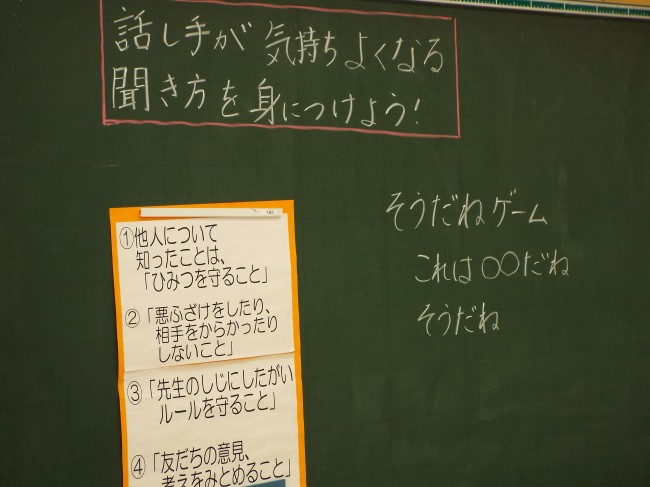 話し手が気持ちよくなる
聞き方を身につけよう!
①他人について
知ったことは、
「ひみつを守ること」
②「悪ふざけをしたり、
相手をからかったり
しないこと」
③「先生のしじにしたがい
ルールを守ること」
④「友だちの意見、
考えをみとめること」
そうだねゲーム
これは○○だね
そうだね